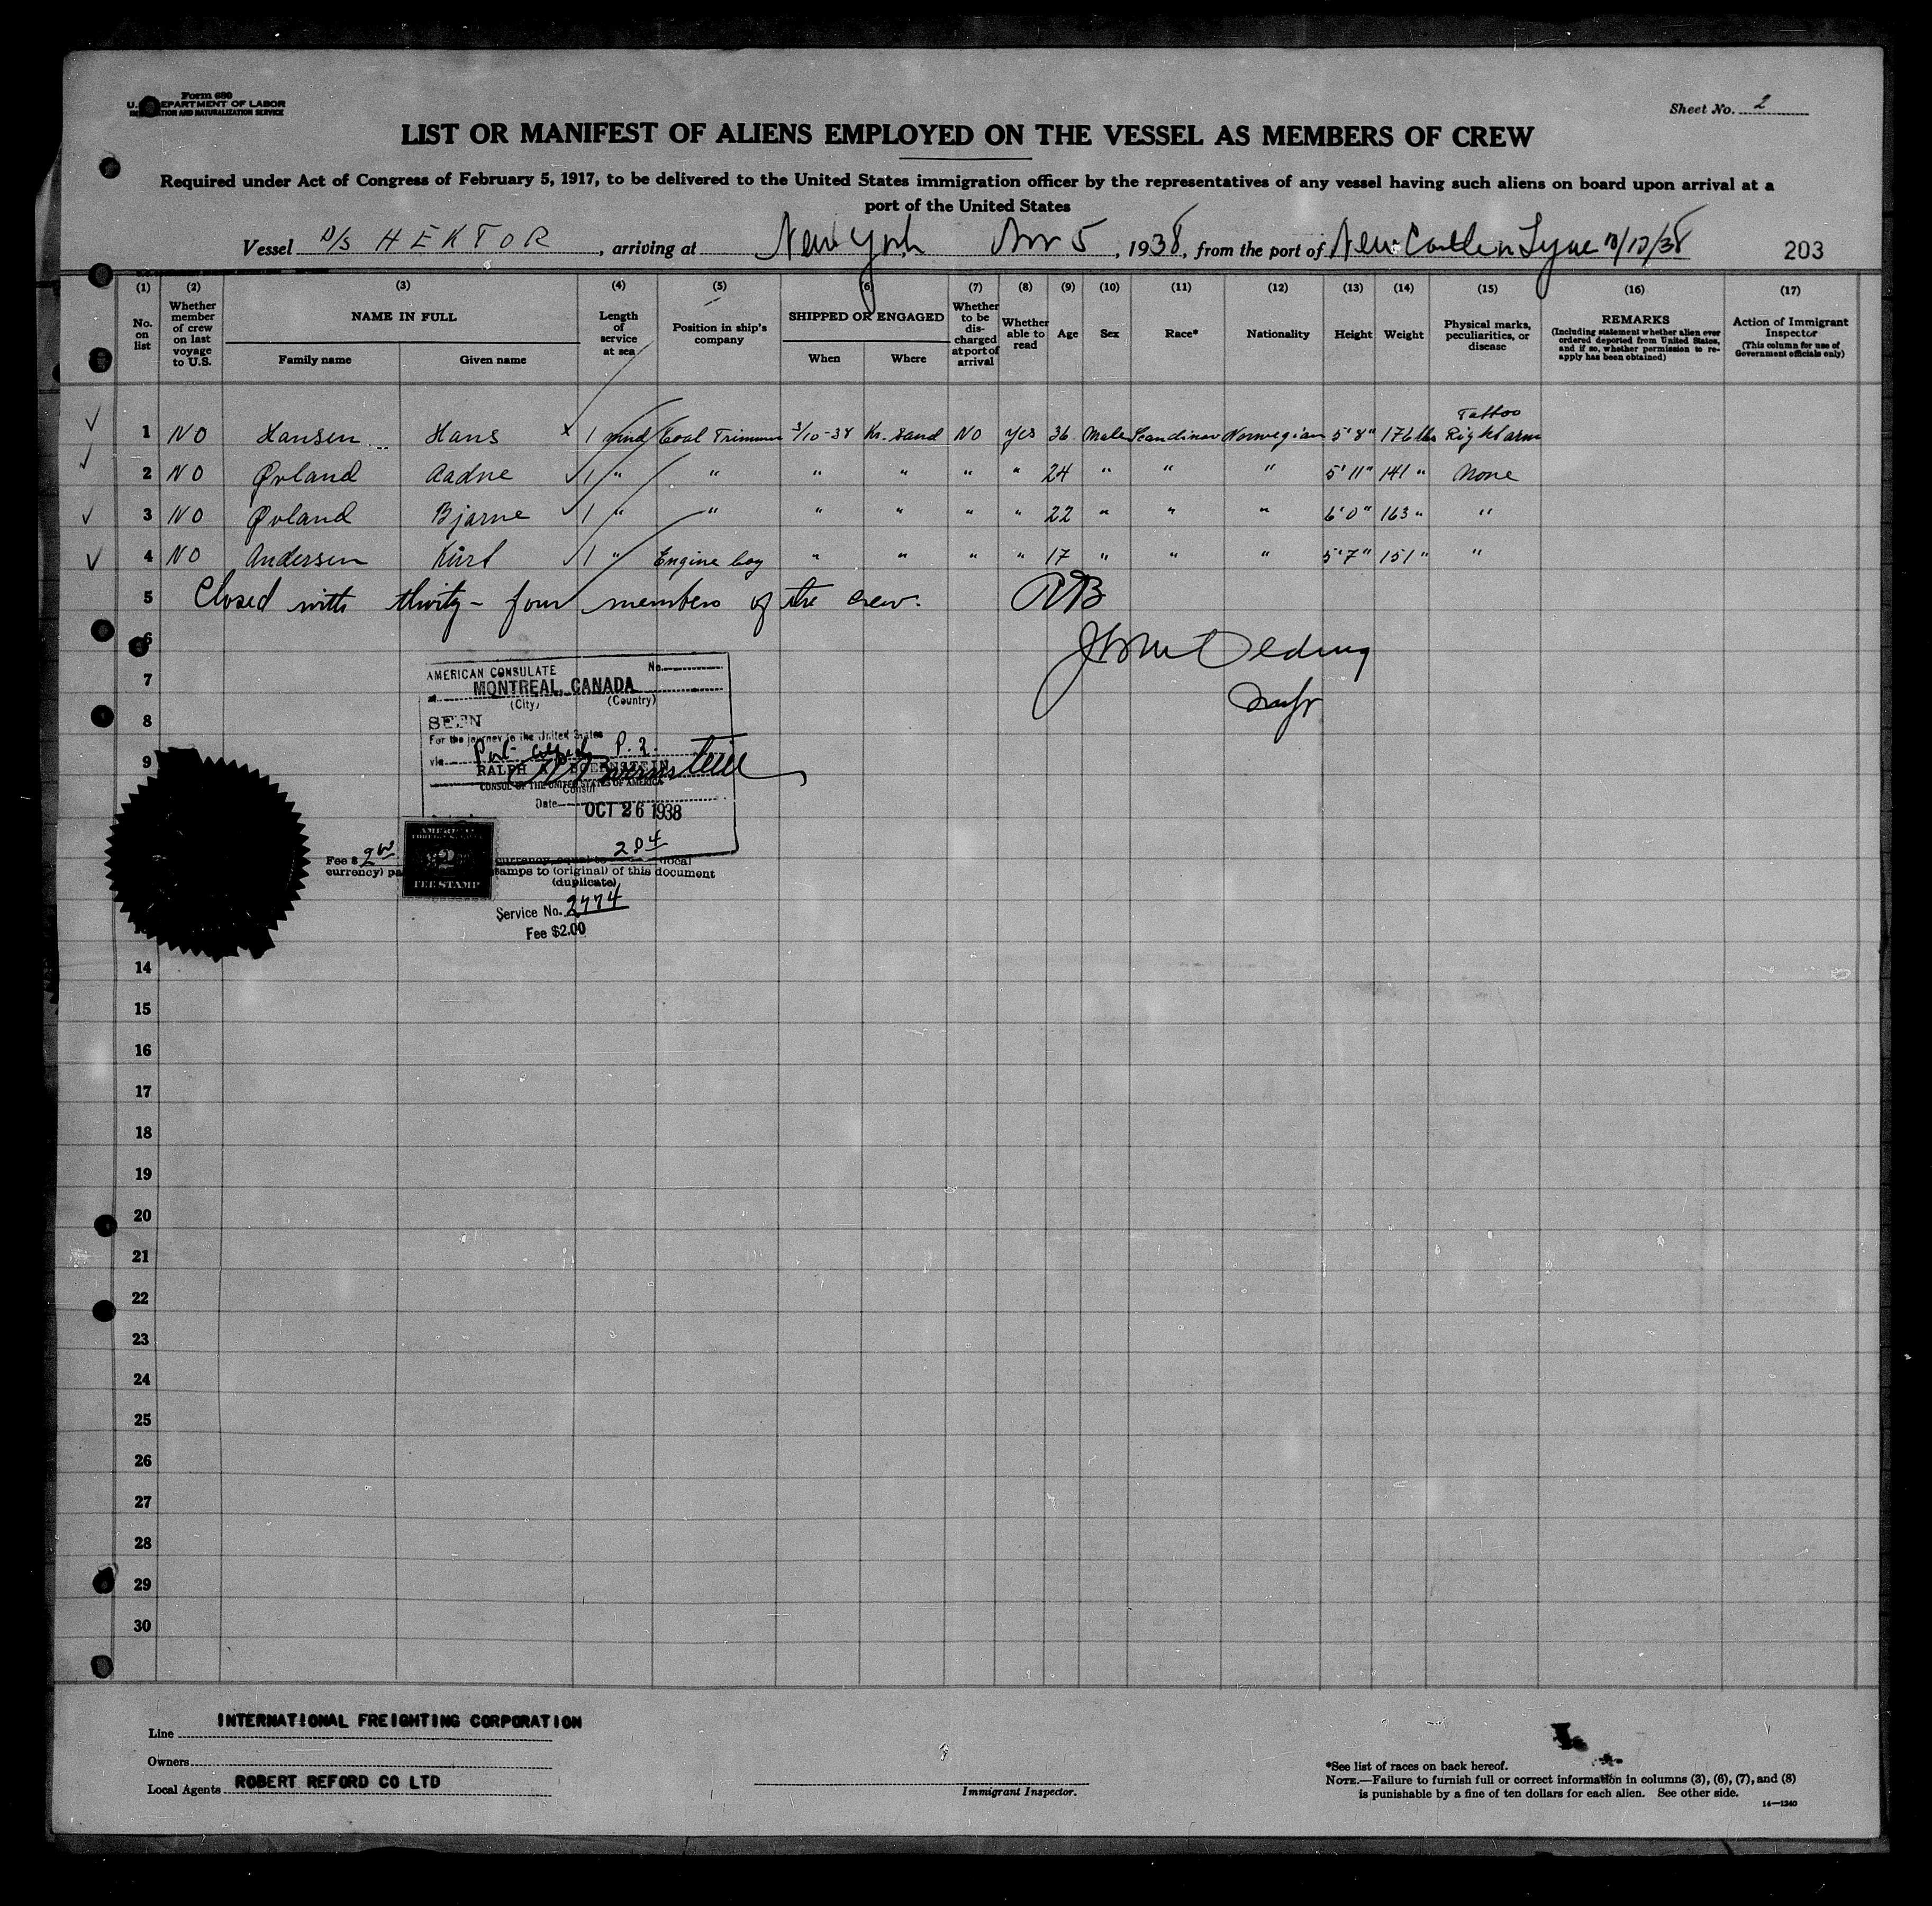 Form 680
U. S. DEPARTMENT OF LABOR
IMMIGRATION AND NATURALIZATION SERVICE
Sheet No. 2
LIST OR MANIFEST OF ALIENS EMPLOYED ON THE VESSEL AS MEMBERS OF CREW
Required under Act of Congress of February 5, 1917, to be delivered to the United States immigration officer by the representatives of any vessel having such aliens on board upon arrival at a
port of the United States
Vessel D/S HEKTOR, arriving at New York Nov 5, 1938, from the port of New Castle n Tyne 10/10/38 203
(1) (2) (3) (4) (5) (6) (7) (8) (9) (10) (11) (12) (13) (14) (15) (16) (17)
No. on list
Whether member of crew on last voyage to U.S.
NAME IN FULL
Family name
Given name
Length of service at sea
Position in ship's company
SHIPPED OR ENGAGED
When
Where
Whether to be discharged at port of arrival
Whether able to read
Age
Sex
Race*
Nationality
Height
Weight
Physical marks, peculiarities, or disease
REMARKS
(Including statement whether alien ever ordered deported from United States, and if so, whether permission to re-apply has been obtained)
Action of Immigrant Inspector
(This column for use of Government officials only)
1 NO Hansen Hans 1 Coal Trimmer 3/10-38 Kr. sand NO yes 36 Male Scandinav Norwegian 5'8" 176 lbs Tattoo Right arm
2 NO Ørland Aadne 1 " " " " " " 24 " " " 5'11" 141 " None
3 NO Øvland Bjarne 1 " " " " " " 22 " " " 6'0" 163 " "
4 NO Andersen Kurt 1 " Engine boy " " " " 17 " " " 5'7" 151 " "
5 Closed with thirty-four members of the crew. RB
6
7
8
9
AMERICAN CONSULATE No.
MONTREAL, CANADA
(City) (Country)
SEEN
For the journey to the United States
via Port P. Q.
RALPH A. BOERNSTEIN
CONSUL OF THE UNITED STATES OF AMERICA
Consul
Date OCT 26 1938
AMERICAN
FOREIGN SERVICE
$2
FEE STAMP
Fee $ 2.00 currency, equal to 2.04 (local
currency) pa stamps to (original) of this document
(duplicate)
Service No. 2774
Fee $2.00
14
15
16
17
18
19
20
21
22
23
24
25
26
27
28
29
30
Line INTERNATIONAL FREIGHTING CORPORATION
Owners
Local Agents ROBERT REFORD CO LTD
Immigrant Inspector.
*See list of races on back hereof.
NOTE.—Failure to furnish full or correct information in columns (3), (6), (7), and (8)
is punishable by a fine of ten dollars for each alien. See other side.
14—1240